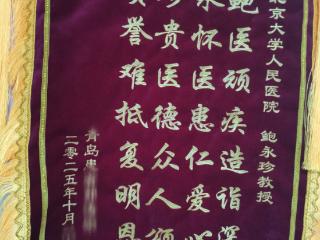 北京大学人民医院 鲍永珍教授
鲍医顽疾造诣深
永怀医患仁爱心
珍贵医德众人颂
誉难抵复明恩
青岛患
二零二五年十月